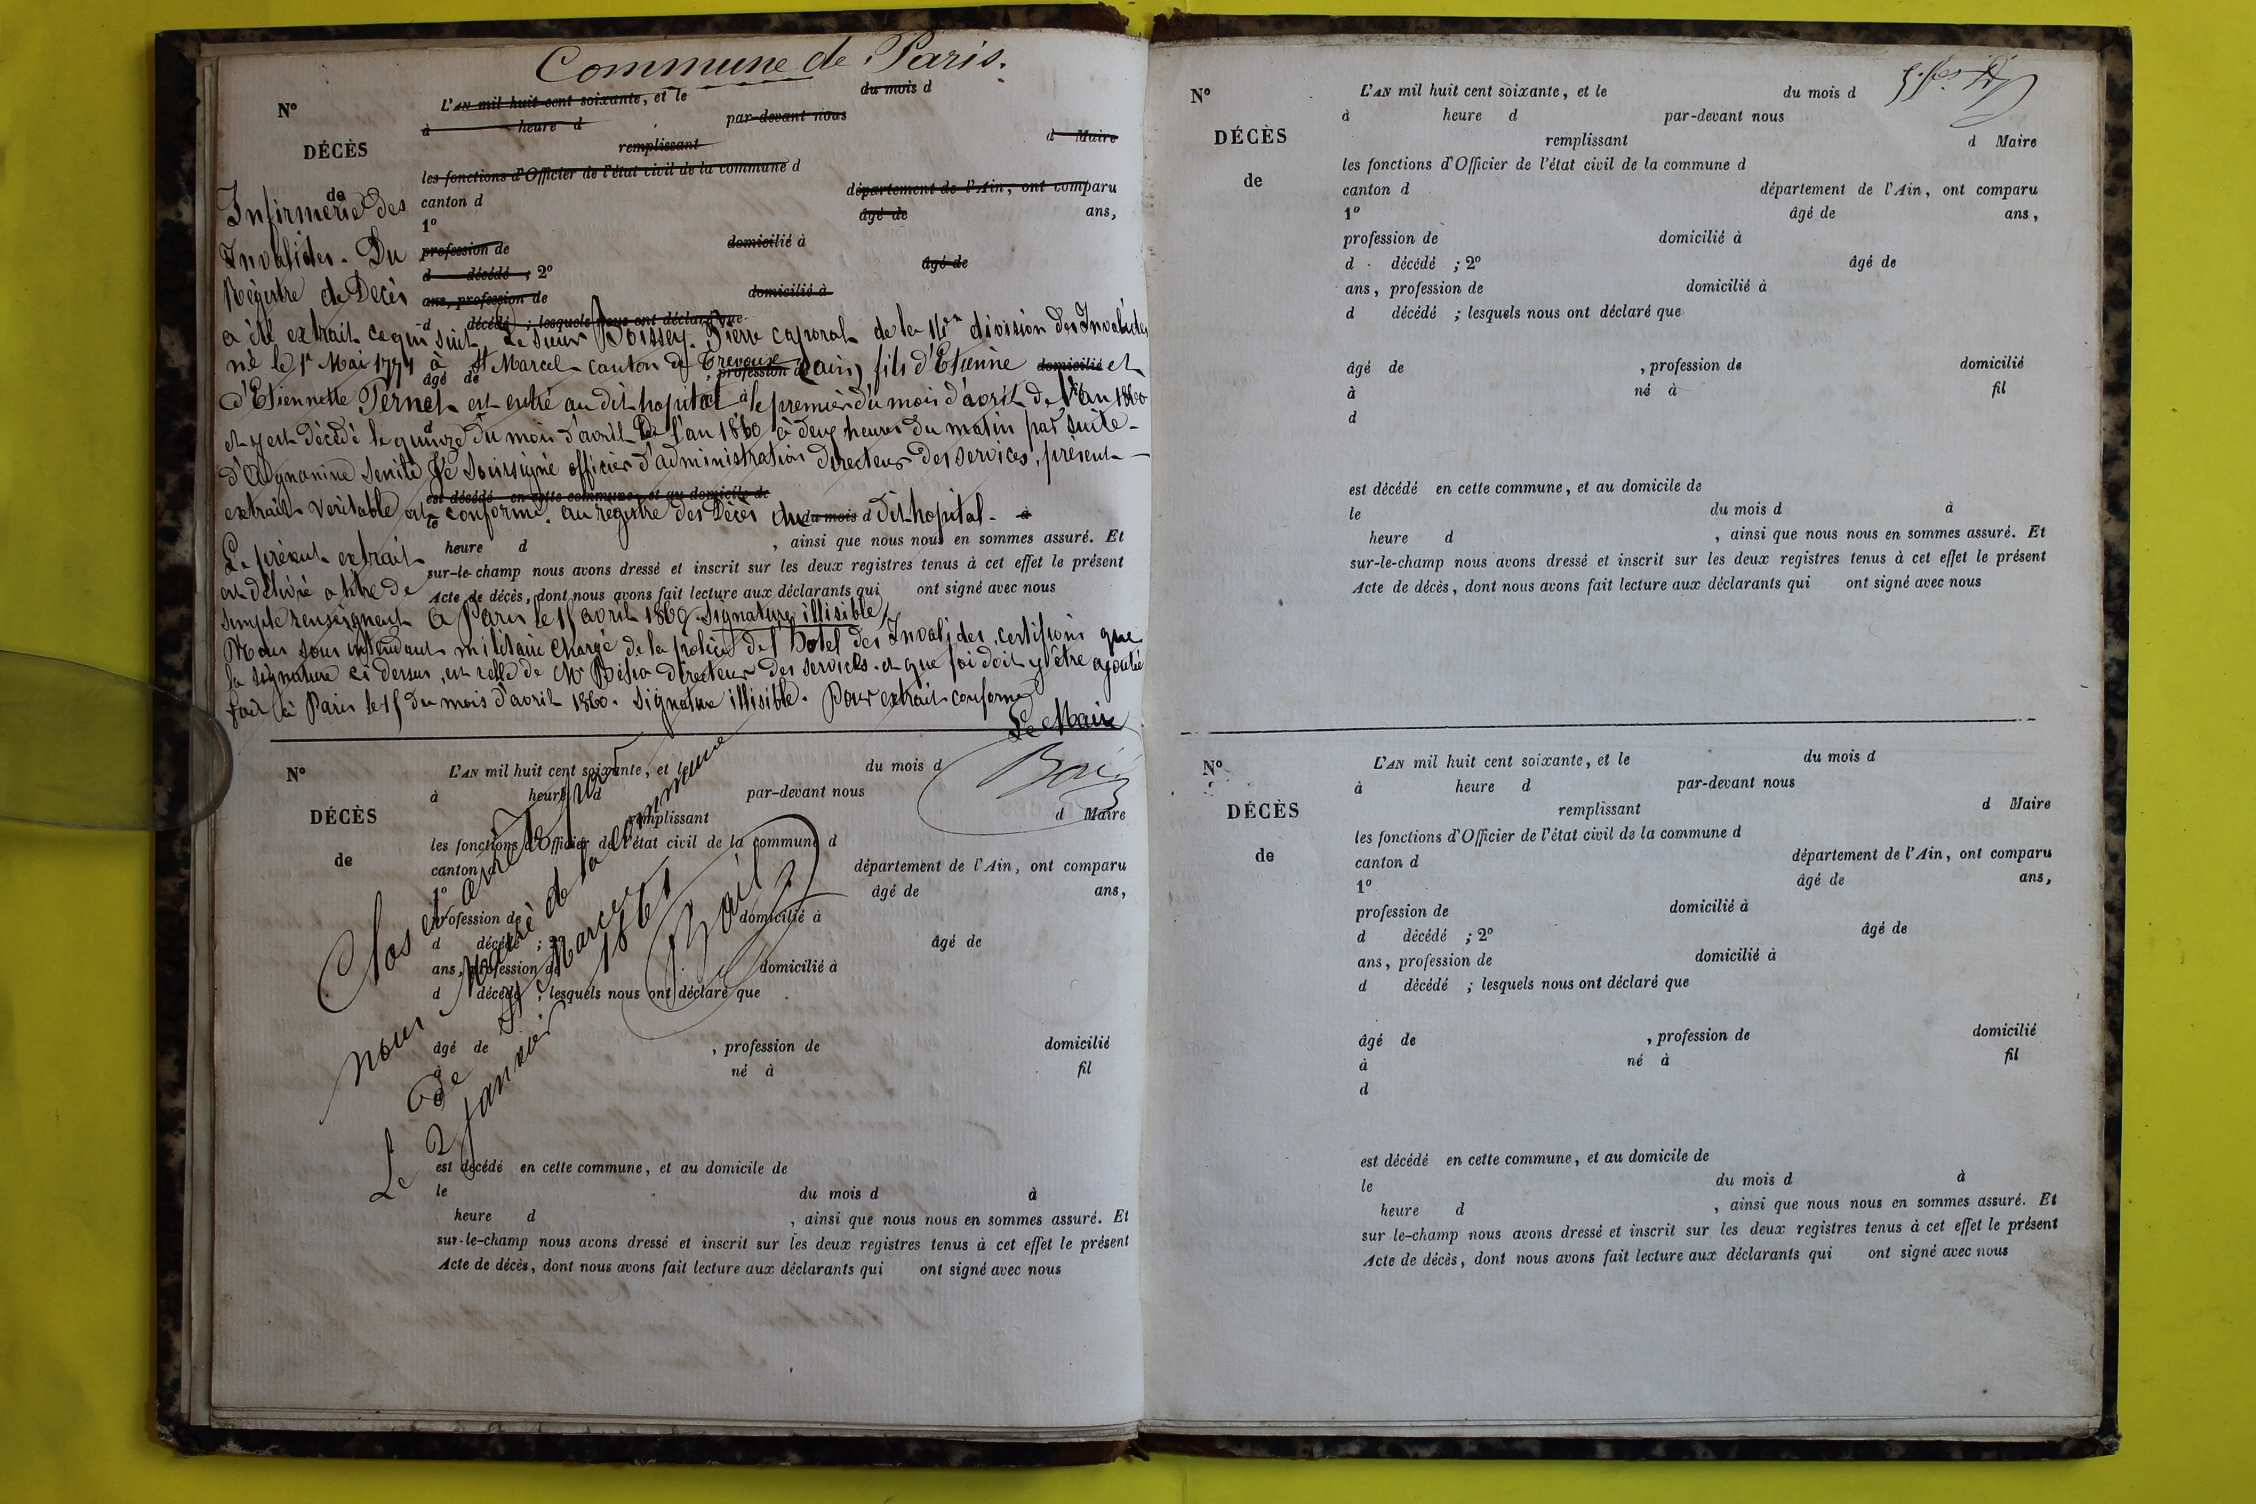 Commune de Paris.
N°
L'AN mil huit cent soixante, et le du mois d
à heure d par-devant nous
DÉCÈS
remplissant d Maire
les fonctions d'Officier de l'état civil de la commune d
de
canton d département de l'Ain, ont comparu
Infirmerie des
1° âgé de ans,
Invalides. Du
profession de domicilié à
d décédé ; 2° âgé de
Régistre de Decès
ans, profession de domicilié à
d décédé ; lesquels nous ont déclaré que
a été extrait ce qui suit, Le sieur Boissey. Pierre caporal de la 14e division des Invalides
né le 1r Mai 1774 à St Marcel canton de Trevoux (ain) fils d'Etienne et
âgé de , profession de domicilié
d'Etiennette Pernet est entré au dit hopital le premier du mois d'avril de l'an 1860
et y est décédé le quinze du mois d'avril de l'an 1860 à deux heures du matin par suite
d' senile Je soussigné officier d'administration directeur des services, présent
est décédé en cette commune, et au domicile de
extrait veritable et conforme au régistre des Décès du dit hopital.
le du mois d à
heure d , ainsi que nous nous en sommes assuré. Et
Le présent extrait
sur-le-champ nous avons dressé et inscrit sur les deux registres tenus à cet effet le présent
est délivré a titre de
Acte de décès, dont nous avons fait lecture aux déclarants qui ont signé avec nous
simple renseignement A Paris le 15 avril 1860. Signature illisible
Nous sous intendant militaire chargé de la police de l'hotel des Invalides, certifions que
la signature ci dessus, est celle de Mr directeur des services. et que foi doit y être ajoutée
fait à Paris le 15 du mois d'avril 1860. Signature illisible. Pour extrait conforme
Le Maire
N°
L'AN mil huit cent soixante, et le du mois d
à heure d par-devant nous
DÉCÈS
remplissant d Maire
les fonctions d'Officier de l'état civil de la commune d
de
canton d département de l'Ain, ont comparu
1° âgé de ans,
profession de domicilié à
d décédé ; 2° âgé de
ans, profession de domicilié à
d décédé ; lesquels nous ont déclaré que
Clos et arrêté par
nous Maire de la commune
de St Marcel
Le 2 Janvier 1861
âgé de , profession de domicilié
à né à fil
d
est décédé en cette commune, et au domicile de
le du mois d à
heure d , ainsi que nous nous en sommes assuré. Et
sur-le-champ nous avons dressé et inscrit sur les deux registres tenus à cet effet le présent
Acte de décès, dont nous avons fait lecture aux déclarants qui ont signé avec nous
N°
L'AN mil huit cent soixante, et le du mois d
à heure d par-devant nous
DÉCÈS
remplissant d Maire
les fonctions d'Officier de l'état civil de la commune d
de
canton d département de l'Ain, ont comparu
1° âgé de ans,
profession de domicilié à
d décédé ; 2° âgé de
ans, profession de domicilié à
d décédé ; lesquels nous ont déclaré que
âgé de , profession de domicilié
à né à fil
d
est décédé en cette commune, et au domicile de
le du mois d à
heure d , ainsi que nous nous en sommes assuré. Et
sur-le-champ nous avons dressé et inscrit sur les deux registres tenus à cet effet le présent
Acte de décès, dont nous avons fait lecture aux déclarants qui ont signé avec nous
N°
L'AN mil huit cent soixante, et le du mois d
à heure d par-devant nous
DÉCÈS
remplissant d Maire
les fonctions d'Officier de l'état civil de la commune d
de
canton d département de l'Ain, ont comparu
1° âgé de ans,
profession de domicilié à
d décédé ; 2° âgé de
ans, profession de domicilié à
d décédé ; lesquels nous ont déclaré que
âgé de , profession de domicilié
à né à fil
d
est décédé en cette commune, et au domicile de
le du mois d à
heure d , ainsi que nous nous en sommes assuré. Et
sur-le-champ nous avons dressé et inscrit sur les deux registres tenus à cet effet le présent
Acte de décès, dont nous avons fait lecture aux déclarants qui ont signé avec nous